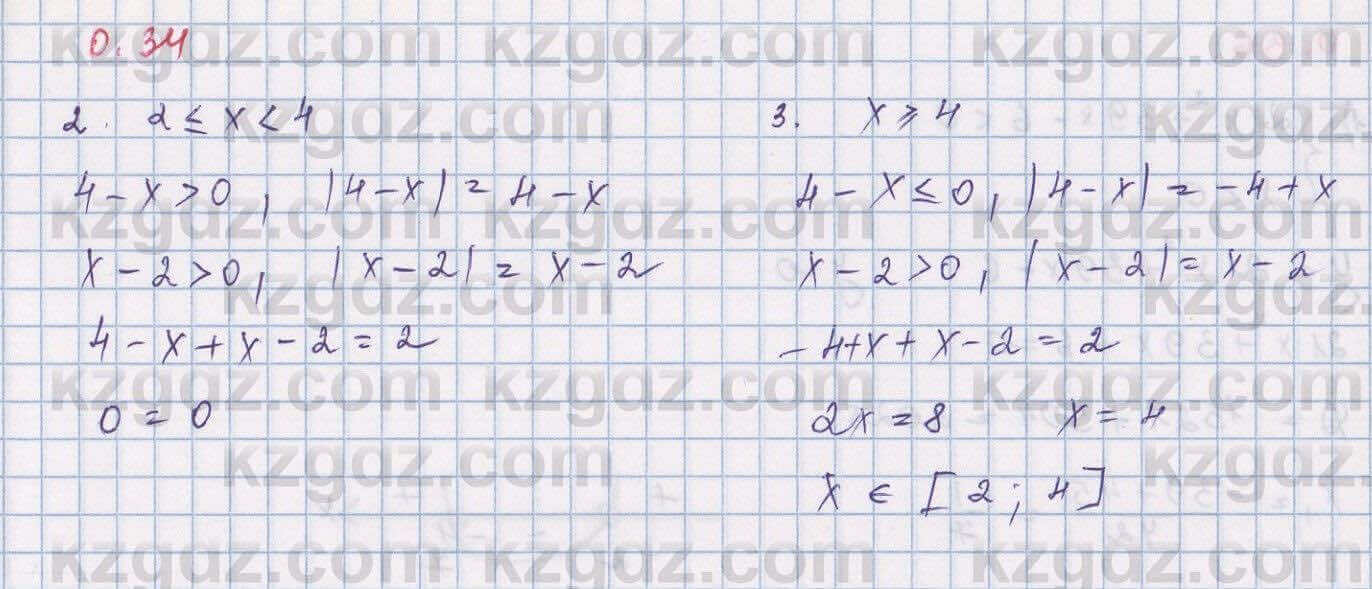 0.34
2. 2 ≤ x < 4
4 – x > 0, |4 – x| = 4 – x
x – 2 > 0, |x – 2| = x – 2
4 – x + x – 2 = 2
0 = 0
3. x ⩾ 4
4 – x ≤ 0, |4 – x| = –4 + x
x – 2 > 0, |x – 2| = x – 2
–4+x + x – 2 = 2
2x = 8 x = 4
x ∈ [2; 4]
kzgdz.com
kzgdz.com
kzgdz.com
kzgdz.com
kzgdz.com
kzgdz.com
kzgdz.com
kzgdz.com
kzgdz.com
kzgdz.com
kzgdz.com
kzgdz.com